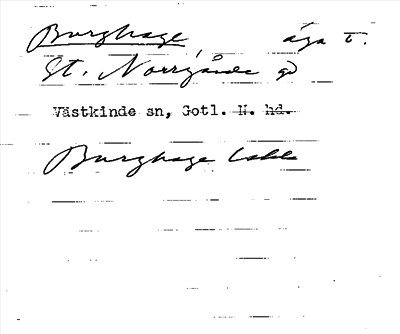 Burghage, äga t.
St. Norrgårde gd
Västkinde sn, Gotl. N. hd.
Burghage